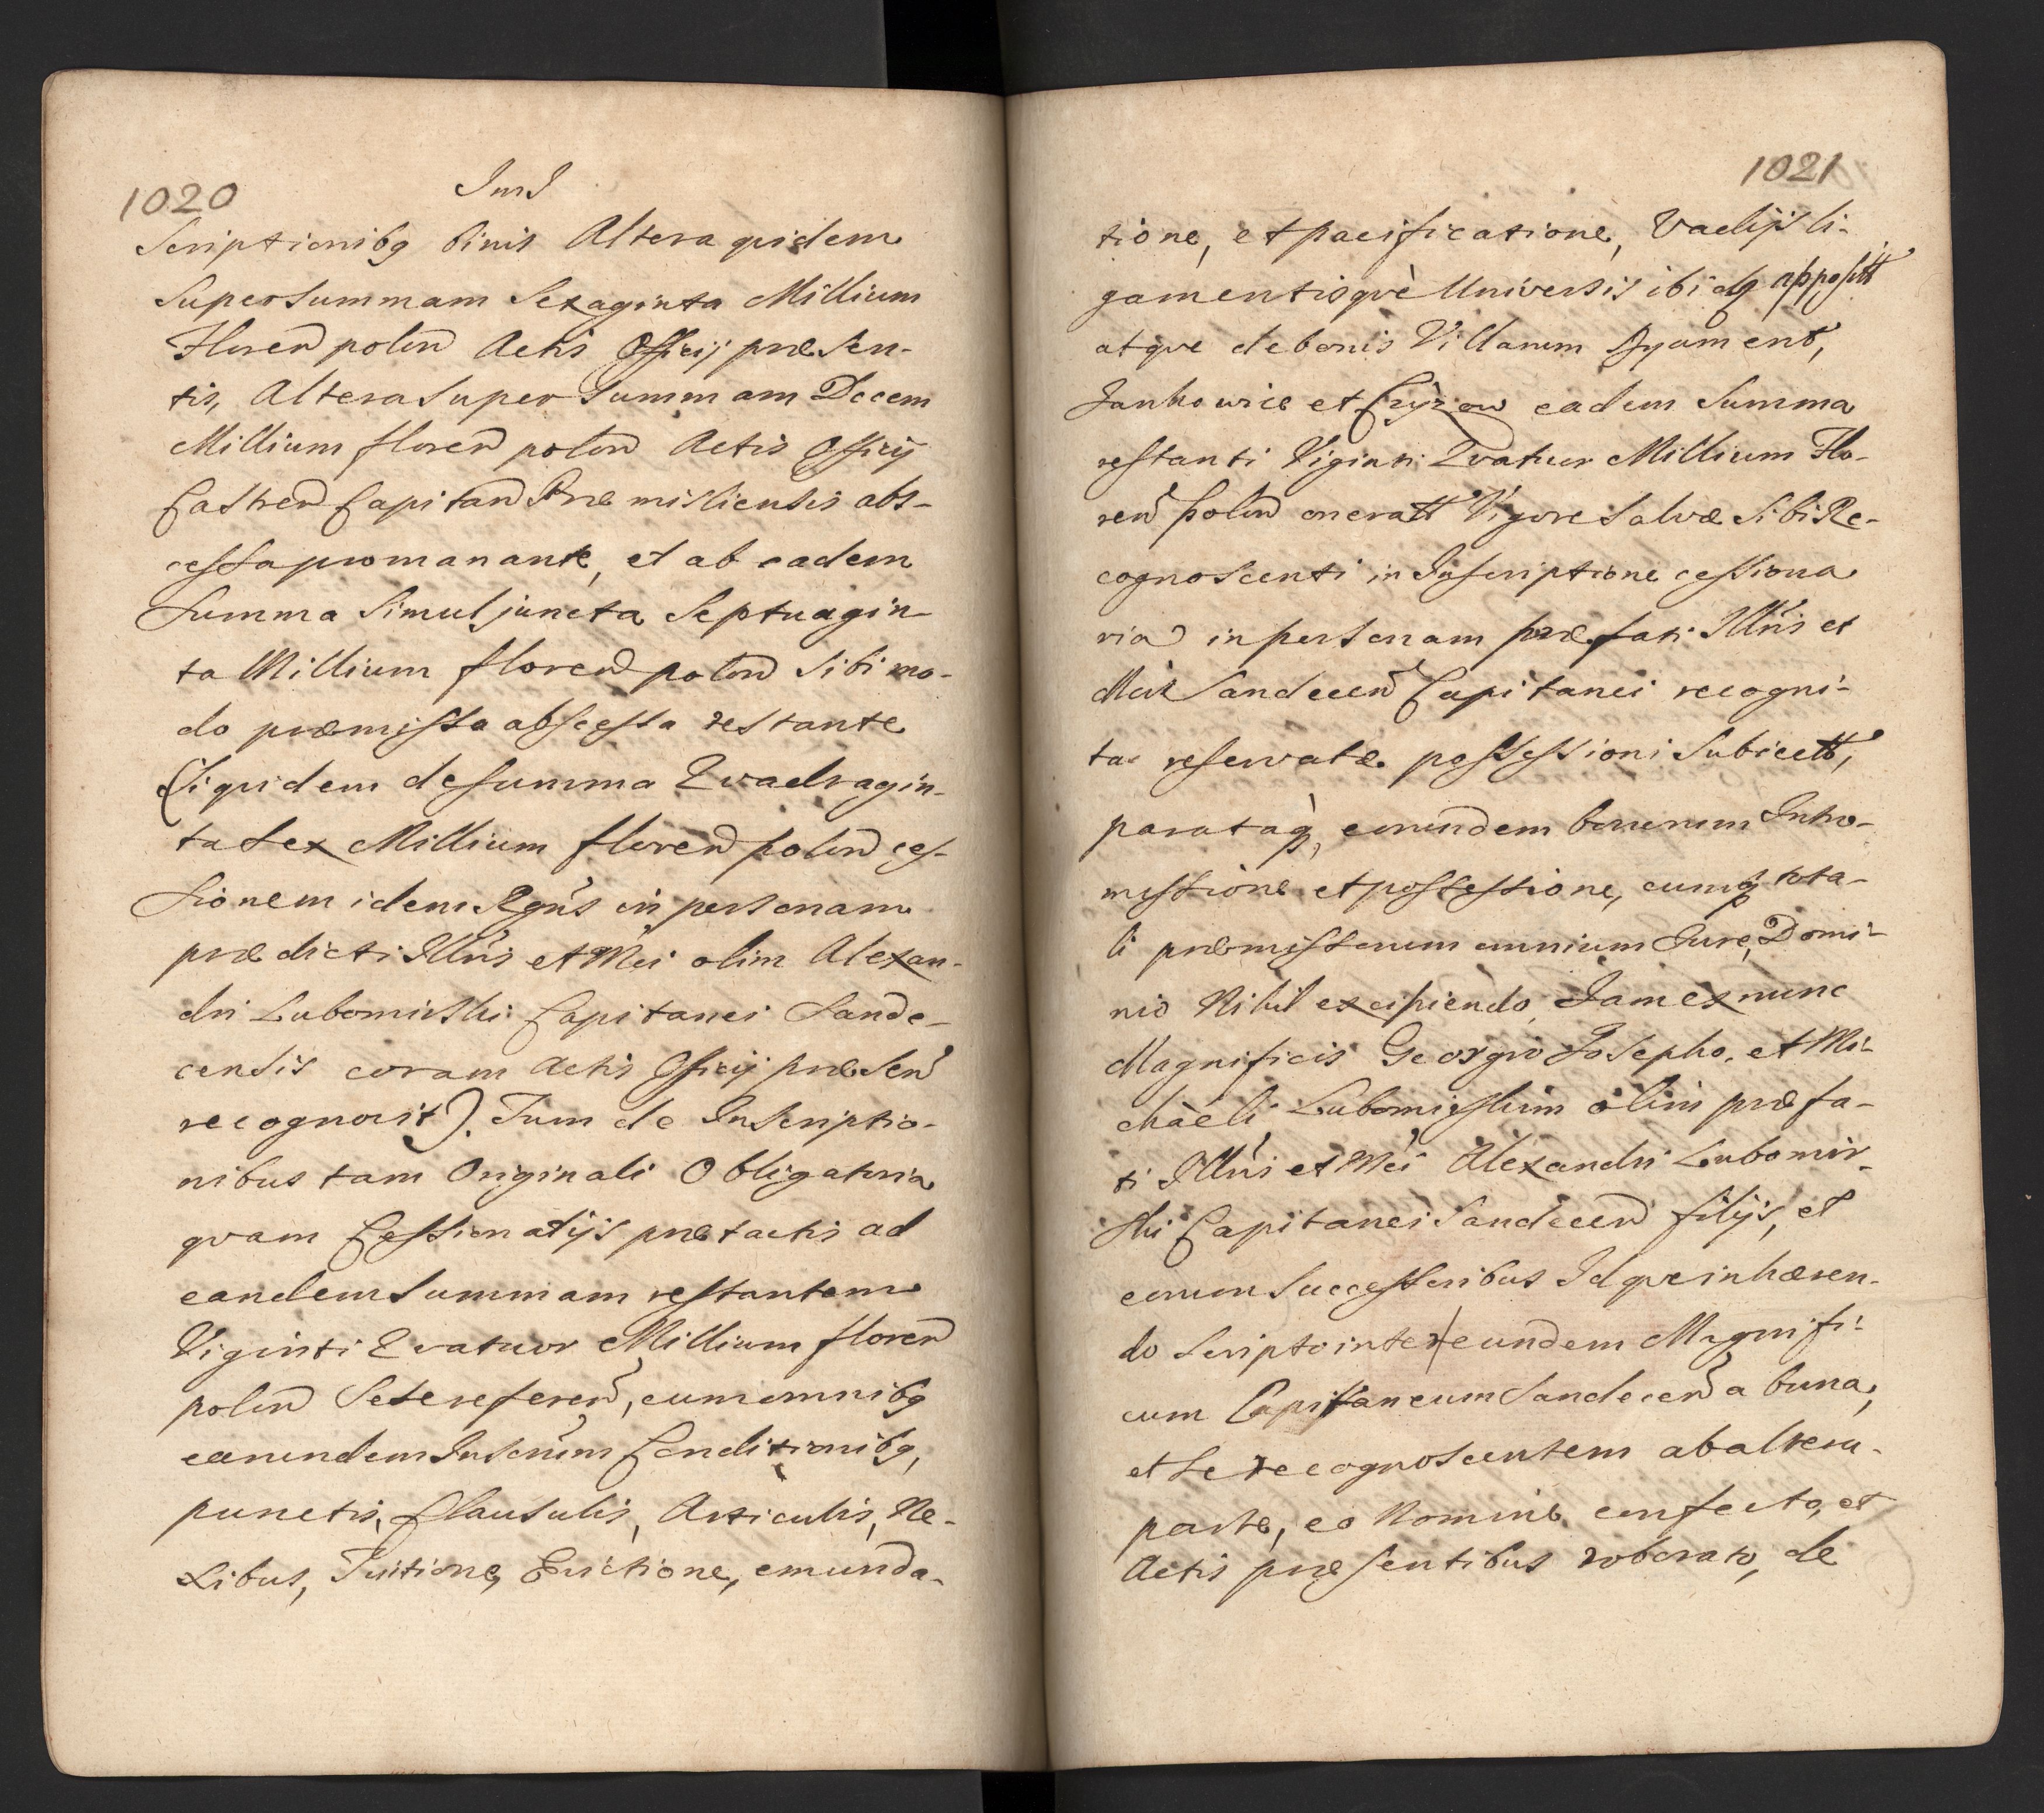 1020
scriptionibg binis Altera quidem
super summam Sexaginta Millium
Floren̄ polon̄ Actis Officij præsen-
tis, Altera super summam Decem
Millium floren̄ polon̄ Actis Officij
Castren̄ Capitan̄ Præmisliensis abs-
cessa promanante, et ab eadem
summa simul juncta Septuagin-
ta Millium floren̄ polon̄ sibi mo-
do præmisso abscessa restante
(siquidem de summa Quadragin-
ta sex Millium floren̄ polon̄ ces-
sionem idem Rgn̄s in personam
prædicti Illn̄s et Mci olim Alexan-
dri Lubomirski Capitanei Sande-
censis coram Actis Officij præsen̄
recognovit). Tum de Inscriptio-
nibus tam Originali Obligatoria
qvam Cessionarijs prætactis ad
eandem summam restantem
Viginti Qvatuor Millium floren̄
polon̄ Sese referen̄, cum omnibg
earundem Inscrium Conditionibg,
punctis, Clausulis, Articulis, Ne-
xibus, Tuitione, Evictione, emunda-
1021
tione, et pacificatione, Vadijs li-
gamentisqvè Universis ibidq appositt
atqve de bonis Villarum
Jankowice et eadem Summa
restanti Viginti Qvatuor Millium Flo-
ren̄ polon̄ oneratt Vigore salvæ sibi Re-
cognoscenti in Inscriptione cessiona
ria in personam præfati Illn̄s et
Mci Sandecen̄ Capitanei recogni-
ta reservatæ possessioni subicett,
parataq, eorundem bonorum Intro-
missione et possessione, cumq tota-
li præmissorum omnium Jure, Domi-
nio Nihil excipiendo, Jam ex nunc
Magnificis Georgio Josepho, et Mi-
chàeli Lubomirskim olim præfa-
ti Illn̄s et Mci Alexandri Lubomir-
ski Capitanei Sandecen̄ filijs, et
eorum Successoribus Idqve inhæren-
do scripto inter eundem Magnifi-
cum Capitaneum Sandecen̄ a buna,
et se recognoscentem ab altera
parte, eo Nomine confecto, et
Actis præsentibus roborato, de